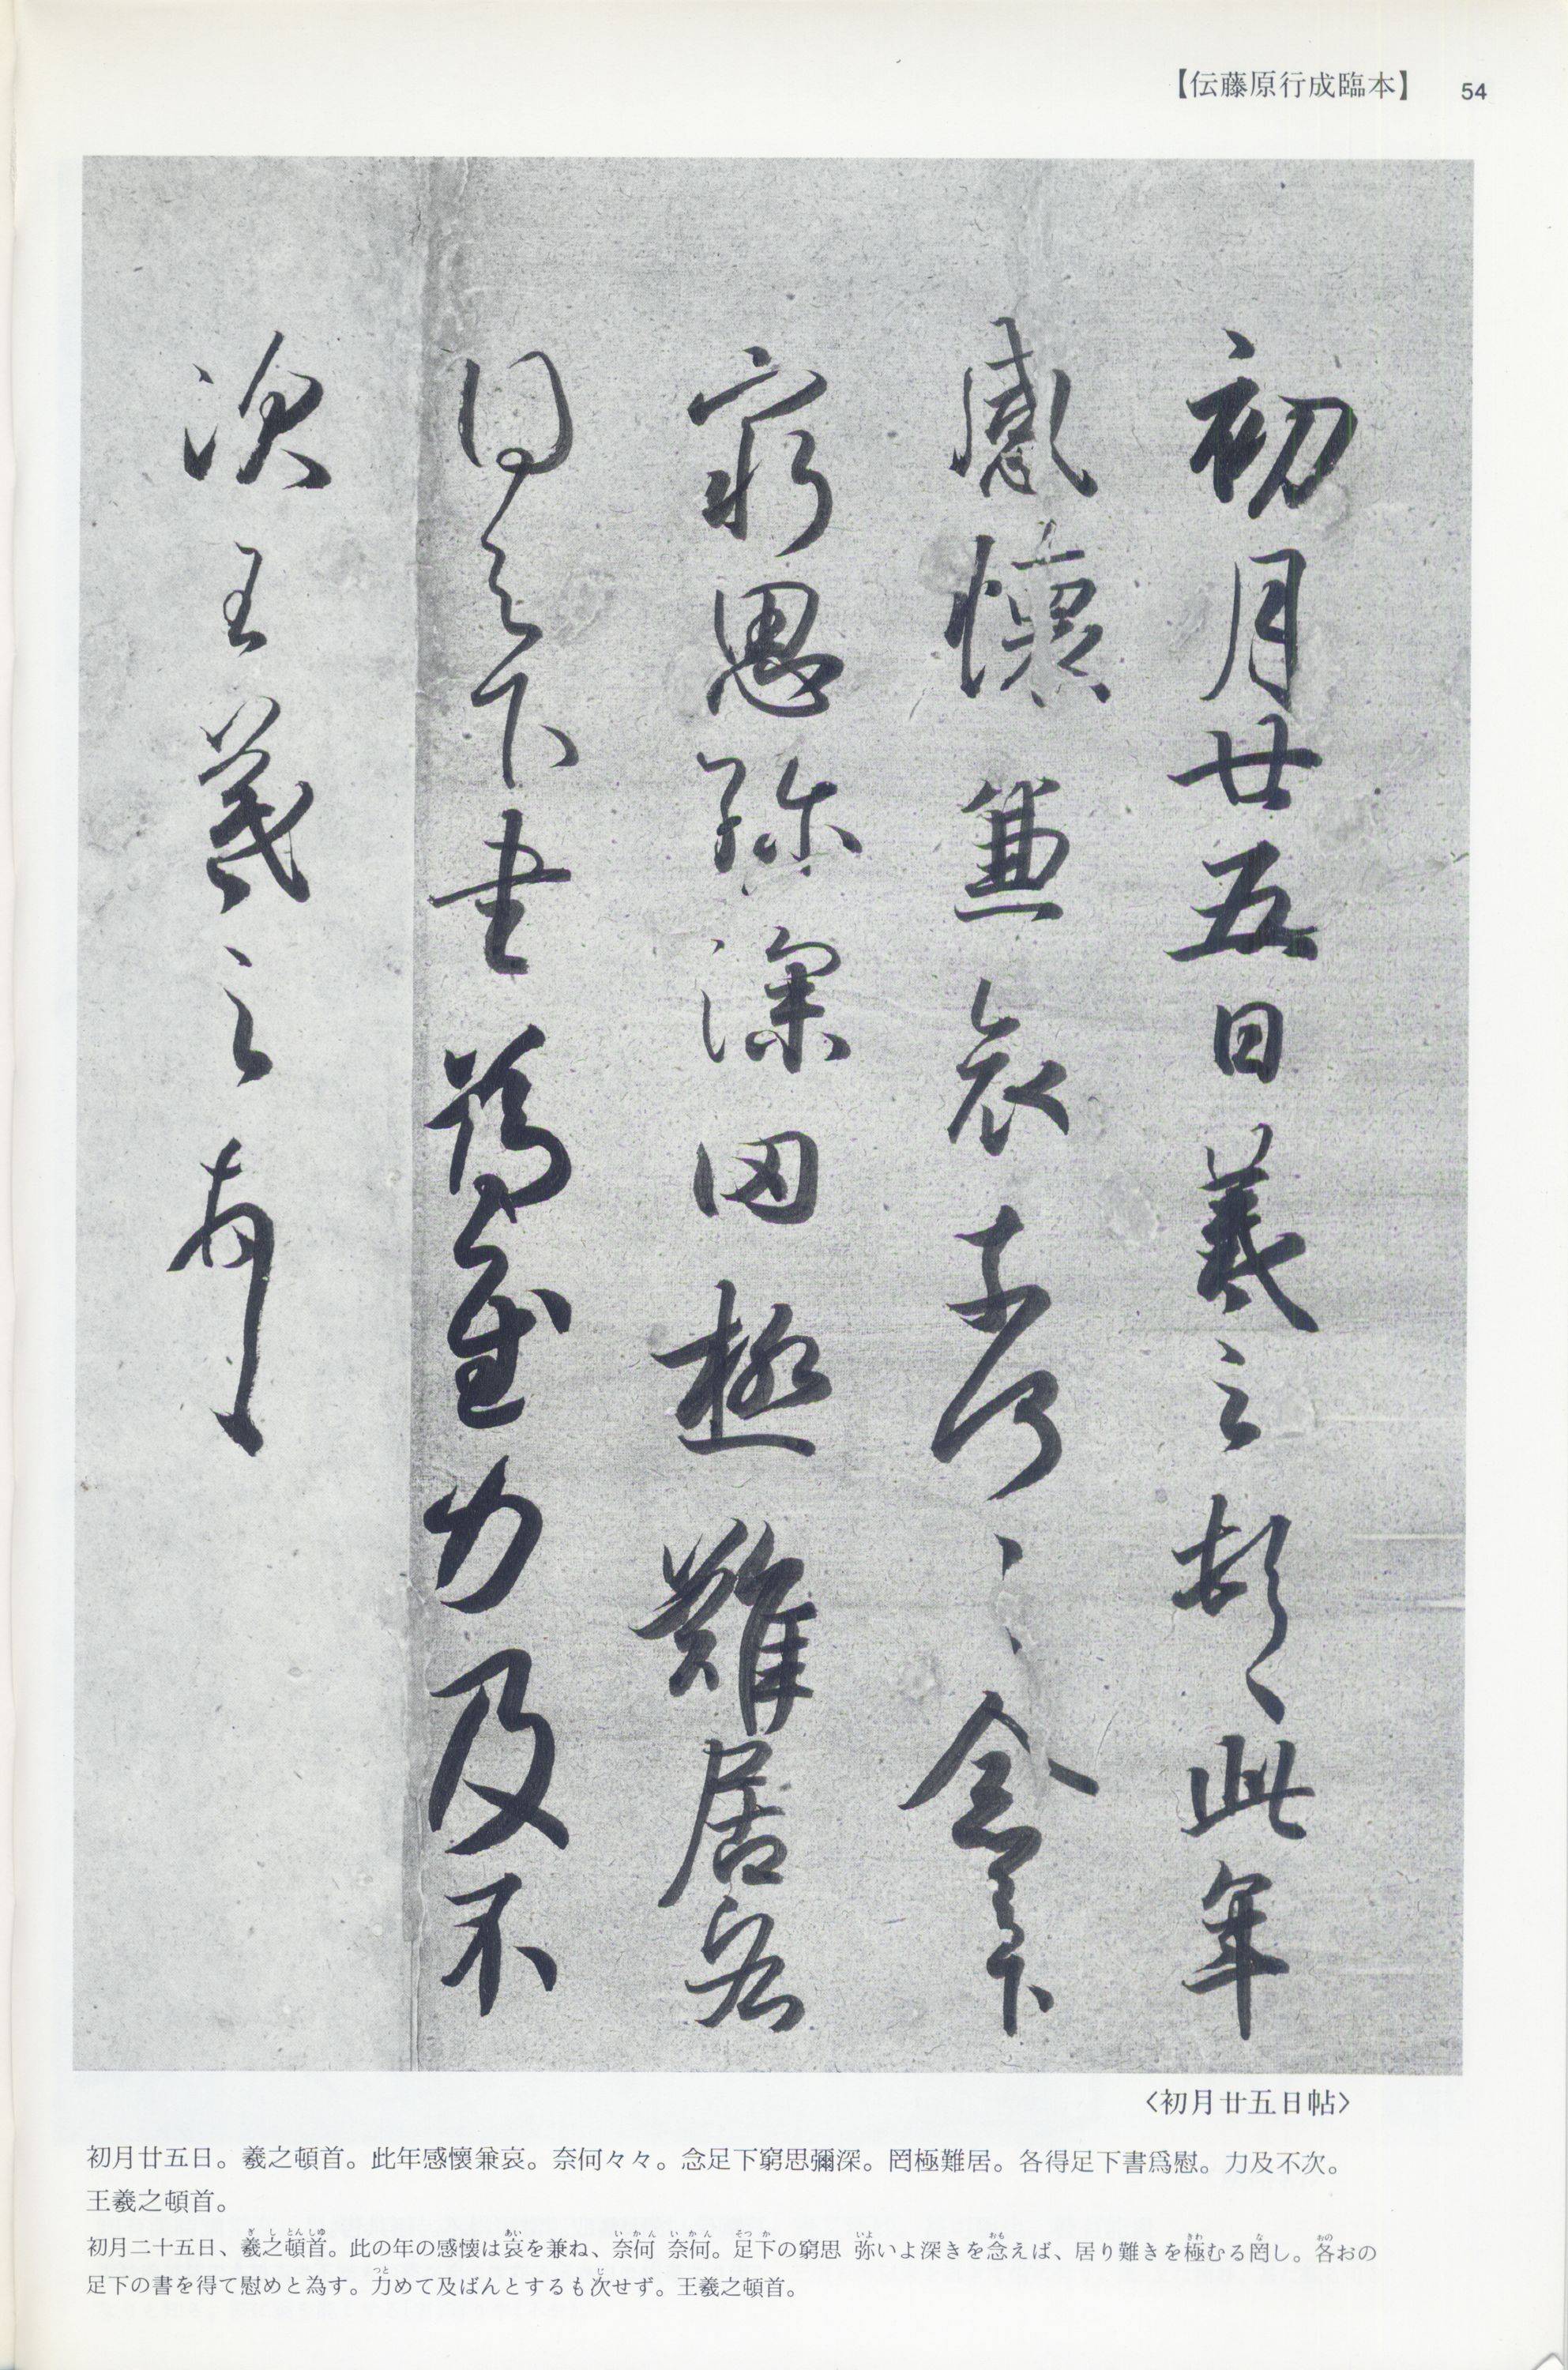 【伝藤原行成臨本】 54
初月廿五日羲之頓首此年
感懷兼哀奈何々々念足下
窮思弥深罔極難居各
得足下書為慰力及不
次王羲之頓首
〈初月廿五日帖〉
初月廿五日。羲之頓首。此年感懷兼哀。奈何々々。念足下窮思彌深。罔極難居。各得足下書爲慰。力及不次。
王羲之頓首。
初月二十五日、羲之頓首。此の年の感懐は哀を兼ね、奈何 奈何。足下の窮思 弥いよ深きを念えば、居り難きを極むる罔し。各おの
足下の書を得て慰めと為す。力めて及ばんとするも次せず。王羲之頓首。